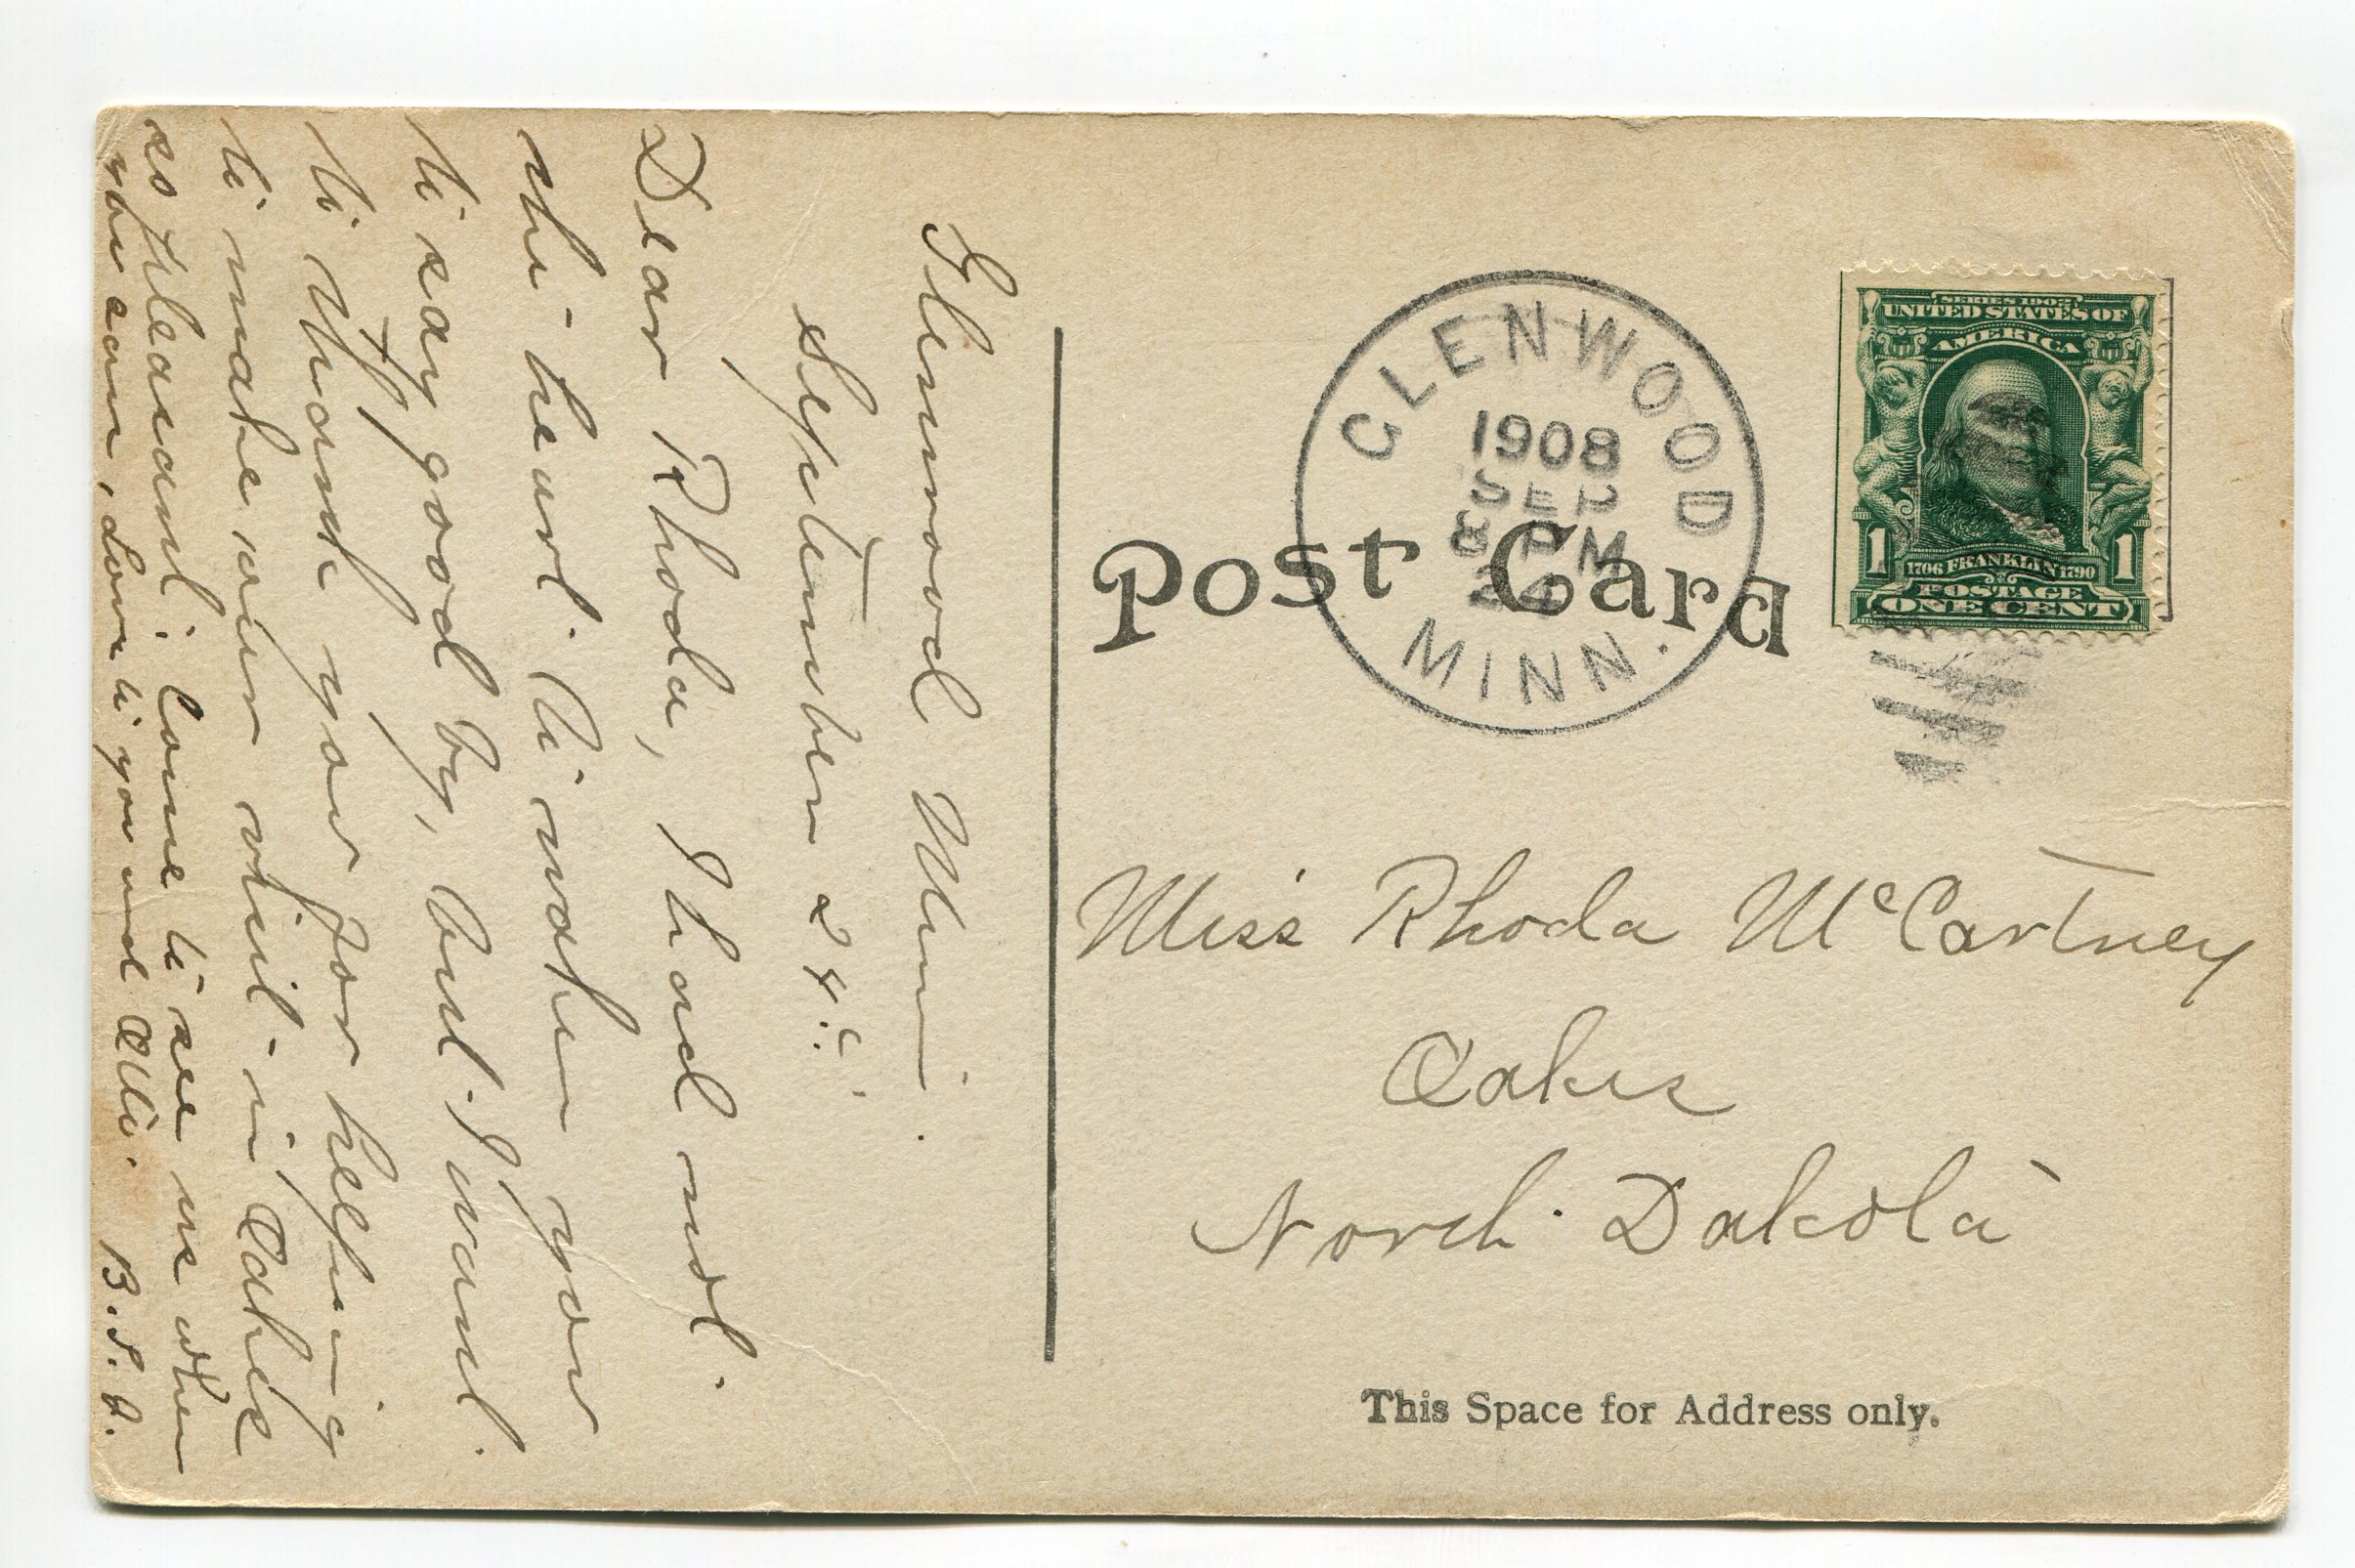 Glenwood Minn.
September 24".
Dear Rhoda, I had not
the heart to waken you
to say good by, but I want
to thank you for helping
to make our visit in Oakes
so pleasant. Come to see us when
you can, Love to you and
B.S.A.
CLENWOOD
1908
SEP
8 PM
24
MINN.
Post Card
SERIES 1902
UNITED STATES OF
AMERICA
1706 FRANKLIN 1790
1 1
POSTAGE
ONE CENT
Miss Rhoda McCartney
Oakes
North Dakota
This Space for Address only.